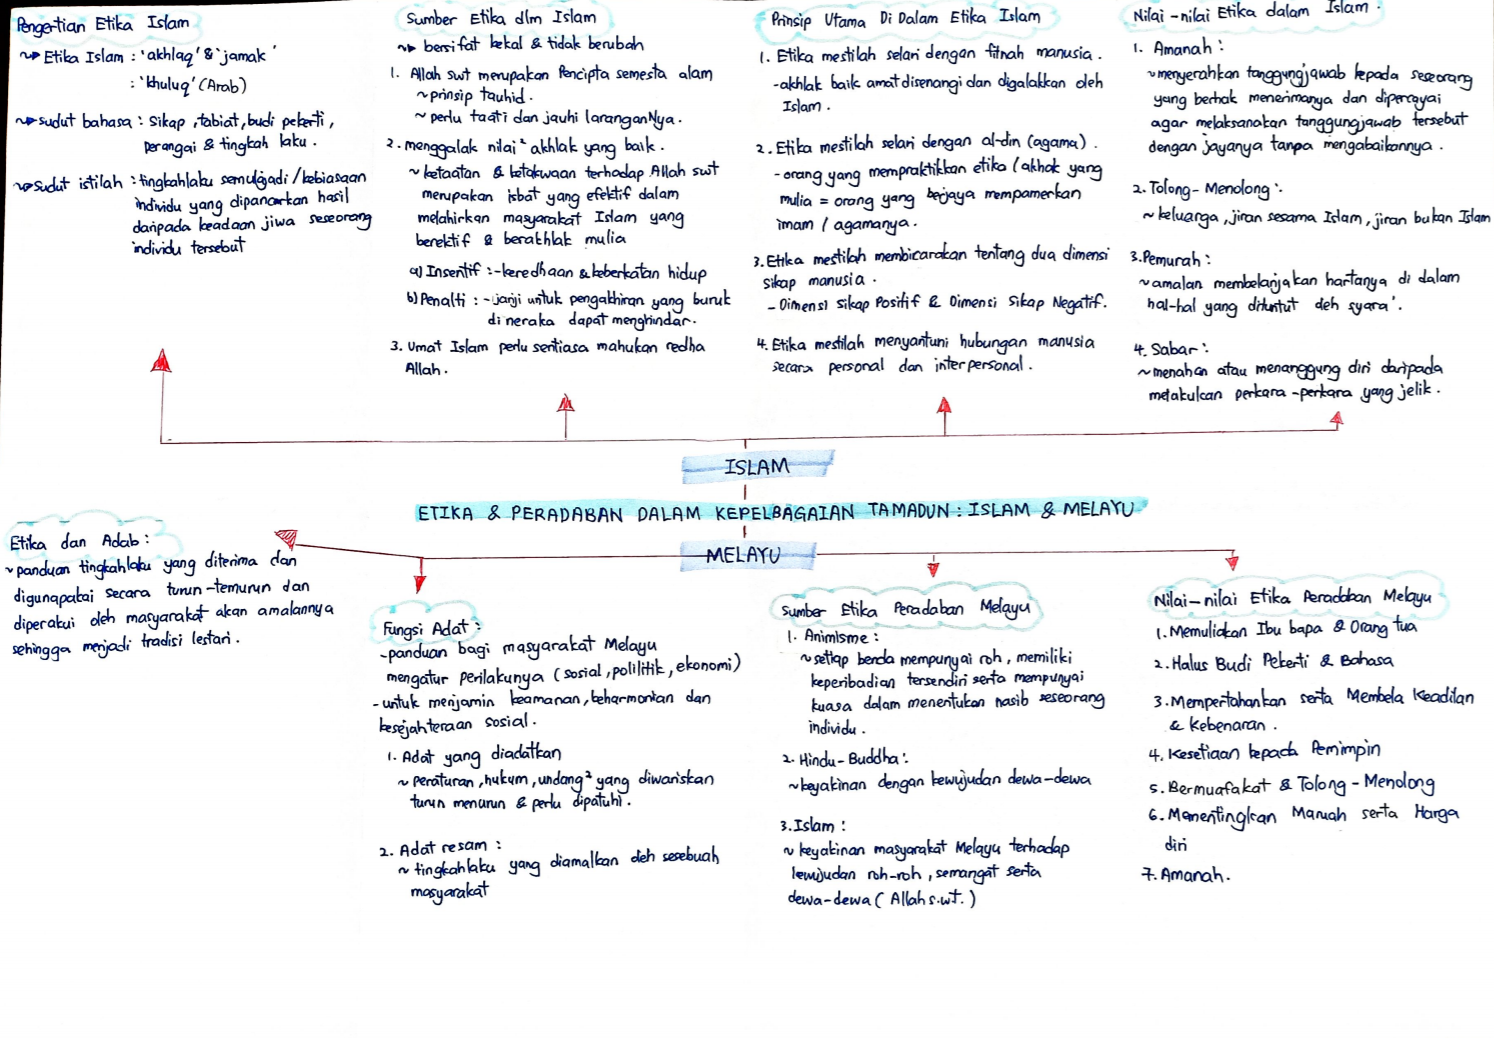 Pengertian Etika Islam
Etika Islam : 'akhlaq' & 'jamak'
: 'khuluq' (Arab)
sudut bahasa : Sikap, tabiat, budi pekerti,
perangai & tingkah laku.
sudut istilah : tingkahlaku semulajadi / kebiasaan
individu yang dipancarkan hasil
daripada keadaan jiwa seseorang
individu tersebut
Sumber Etika dlm Islam
bersifat kekal & tidak berubah
1. Allah swt merupakan Pencipta semesta alam
~ prinsip tauhid.
~ perlu taati dan jauhi laranganNya.
2. menggalak nilai² akhlak yang baik.
~ ketaatan & ketakwaan terhadap Allah swt
merupakan isbat yang efektif dalam
melahirkan masyarakat Islam yang
berektif & berakhlak mulia
a) Insentif : - keredhaan & keberkatan hidup
b) Penalti : - janji untuk pengakhiran yang buruk
di neraka dapat menghindar.
3. Umat Islam perlu sentiasa mahukan redha
Allah.
Prinsip Utama Di Dalam Etika Islam
1. Etika mestilah selari dengan fitnah manusia.
- akhlak baik amat disenangi dan digalakkan oleh
Islam.
2. Etika mestilah selari dengan al-din (agama).
- orang yang mempraktikkan etika / akhak yang
mulia = orang yang berjaya mempamerkan
imam / agamanya.
3. Etika mestilah membicarakan tentang dua dimensi
sikap manusia.
- Dimensi sikap Positif & Dimensi Sikap Negatif.
4. Etika mestilah menyantuni hubungan manusia
secara personal dan interpersonal.
Nilai-nilai Etika dalam Islam.
1. Amanah :
~ menyerahkan tanggungjawab kepada seseorang
yang berhak menerimanya dan dipercayai
agar melaksanakan tanggungjawab tersebut
dengan jayanya tanpa mengabaikannya.
2. Tolong-Menolong :
~ keluarga, jiran sesama Islam, jiran bukan Islam
3. Pemurah :
~ amalan membelanjakan hartanya di dalam
hal-hal yang dituntut oleh syara'.
4. Sabar :
~ menahan atau menanggung diri daripada
melakukan perkara-perkara yang jelik.
ISLAM
ETIKA & PERADABAN DALAM KEPELBAGAIAN TAMADUN : ISLAM & MELAYU
MELAYU
Etika dan Adab :
~ panduan tingkahlaku yang diterima dan
digunapakai secara turun-temurun dan
diperakui oleh masyarakat akan amalannya
sehingga menjadi tradisi lestari.
Fungsi Adat :
- panduan bagi masyarakat Melayu
mengatur perilakunya (sosial, polilitik, ekonomi)
- untuk menjamin keamanan, keharmonian dan
kesejahteraan sosial.
1. Adat yang diadatkan
~ peraturan, hukum, undang² yang diwariskan
turun menurun & perlu dipatuhi.
2. Adat resam :
~ tingkahlaku yang diamalkan oleh sesebuah
masyarakat
Sumber Etika Peradaban Melayu
1. Animisme :
~ setiap benda mempunyai roh, memiliki
keperibadian tersendiri serta mempunyai
kuasa dalam menentukan nasib seseorang
individu.
2. Hindu-Buddha :
~ keyakinan dengan kewujudan dewa-dewa
3. Islam :
~ keyakinan masyarakat Melayu terhadap
kewujudan roh-roh, semangat serta
dewa-dewa (Allah s.w.t.)
Nilai-nilai Etika Peradaban Melayu
1. Memuliakan Ibu bapa & Orang tua
2. Halus Budi Pekerti & Bahasa
3. Mempertahankan serta Membela Keadilan
& Kebenaran.
4. Kesetiaan kepada Pemimpin
5. Bermuafakat & Tolong-Menolong
6. Mementingkan Maruah serta Harga
diri
7. Amanah.